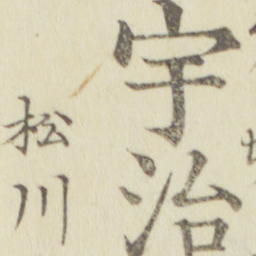 宇治
松川